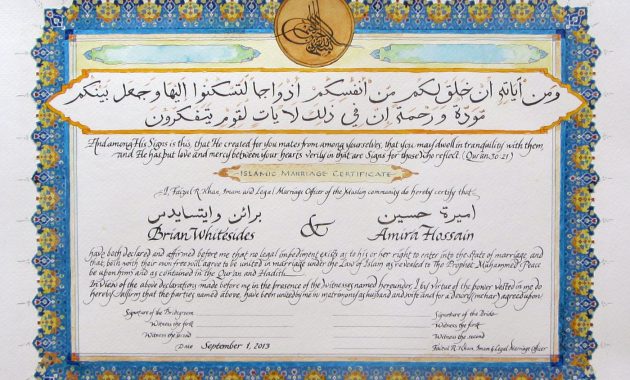 ومن آياته أن خلق لكم من أنفسكم أزواجا لتسكنوا إليها وجعل بينكم
مودة ورحمة إن في ذلك لآيات لقوم يتفكرون
And among His Signs is this, that He created for you mates from among yourselves, that you may dwell in tranquility with them,
and He has put love and mercy between your hearts verily in that are Signs for those who reflect (Qur'an 30:21)
ISLAMIC MARRIAGE CERTIFICATE
I, Faizul R. Khan, Imam and Legal Marriage Officer of the Muslim community do hereby certify that
برائن وايتسايدس اميرة حسين
Brian Whitesides & Amira Hossain
have both declared and affirmed before me that no legal impediment exists as to his or her right to enter into the state of marriage, and
that both with their own free will agree to be united in marriage under the Law of Islam as revealed to The Prophet Muhammed (Peace
be upon him) and as contained in the Qur'an and Hadith.
In view of the above declarations made before me in the presence of the witnesses named hereunder, I by virtue of the power vested in me do
hereby confirm that the parties named above, have been united by me in matrimony as husband and wife and for a dowry (mehar) agreed upon
Signature of the Bridegroom Signature of the Bride
Witness the first Witness the first
Witness the second Witness the second
Date September 1, 2013 Faizul R. Khan, Imam & Legal Marriage Officer